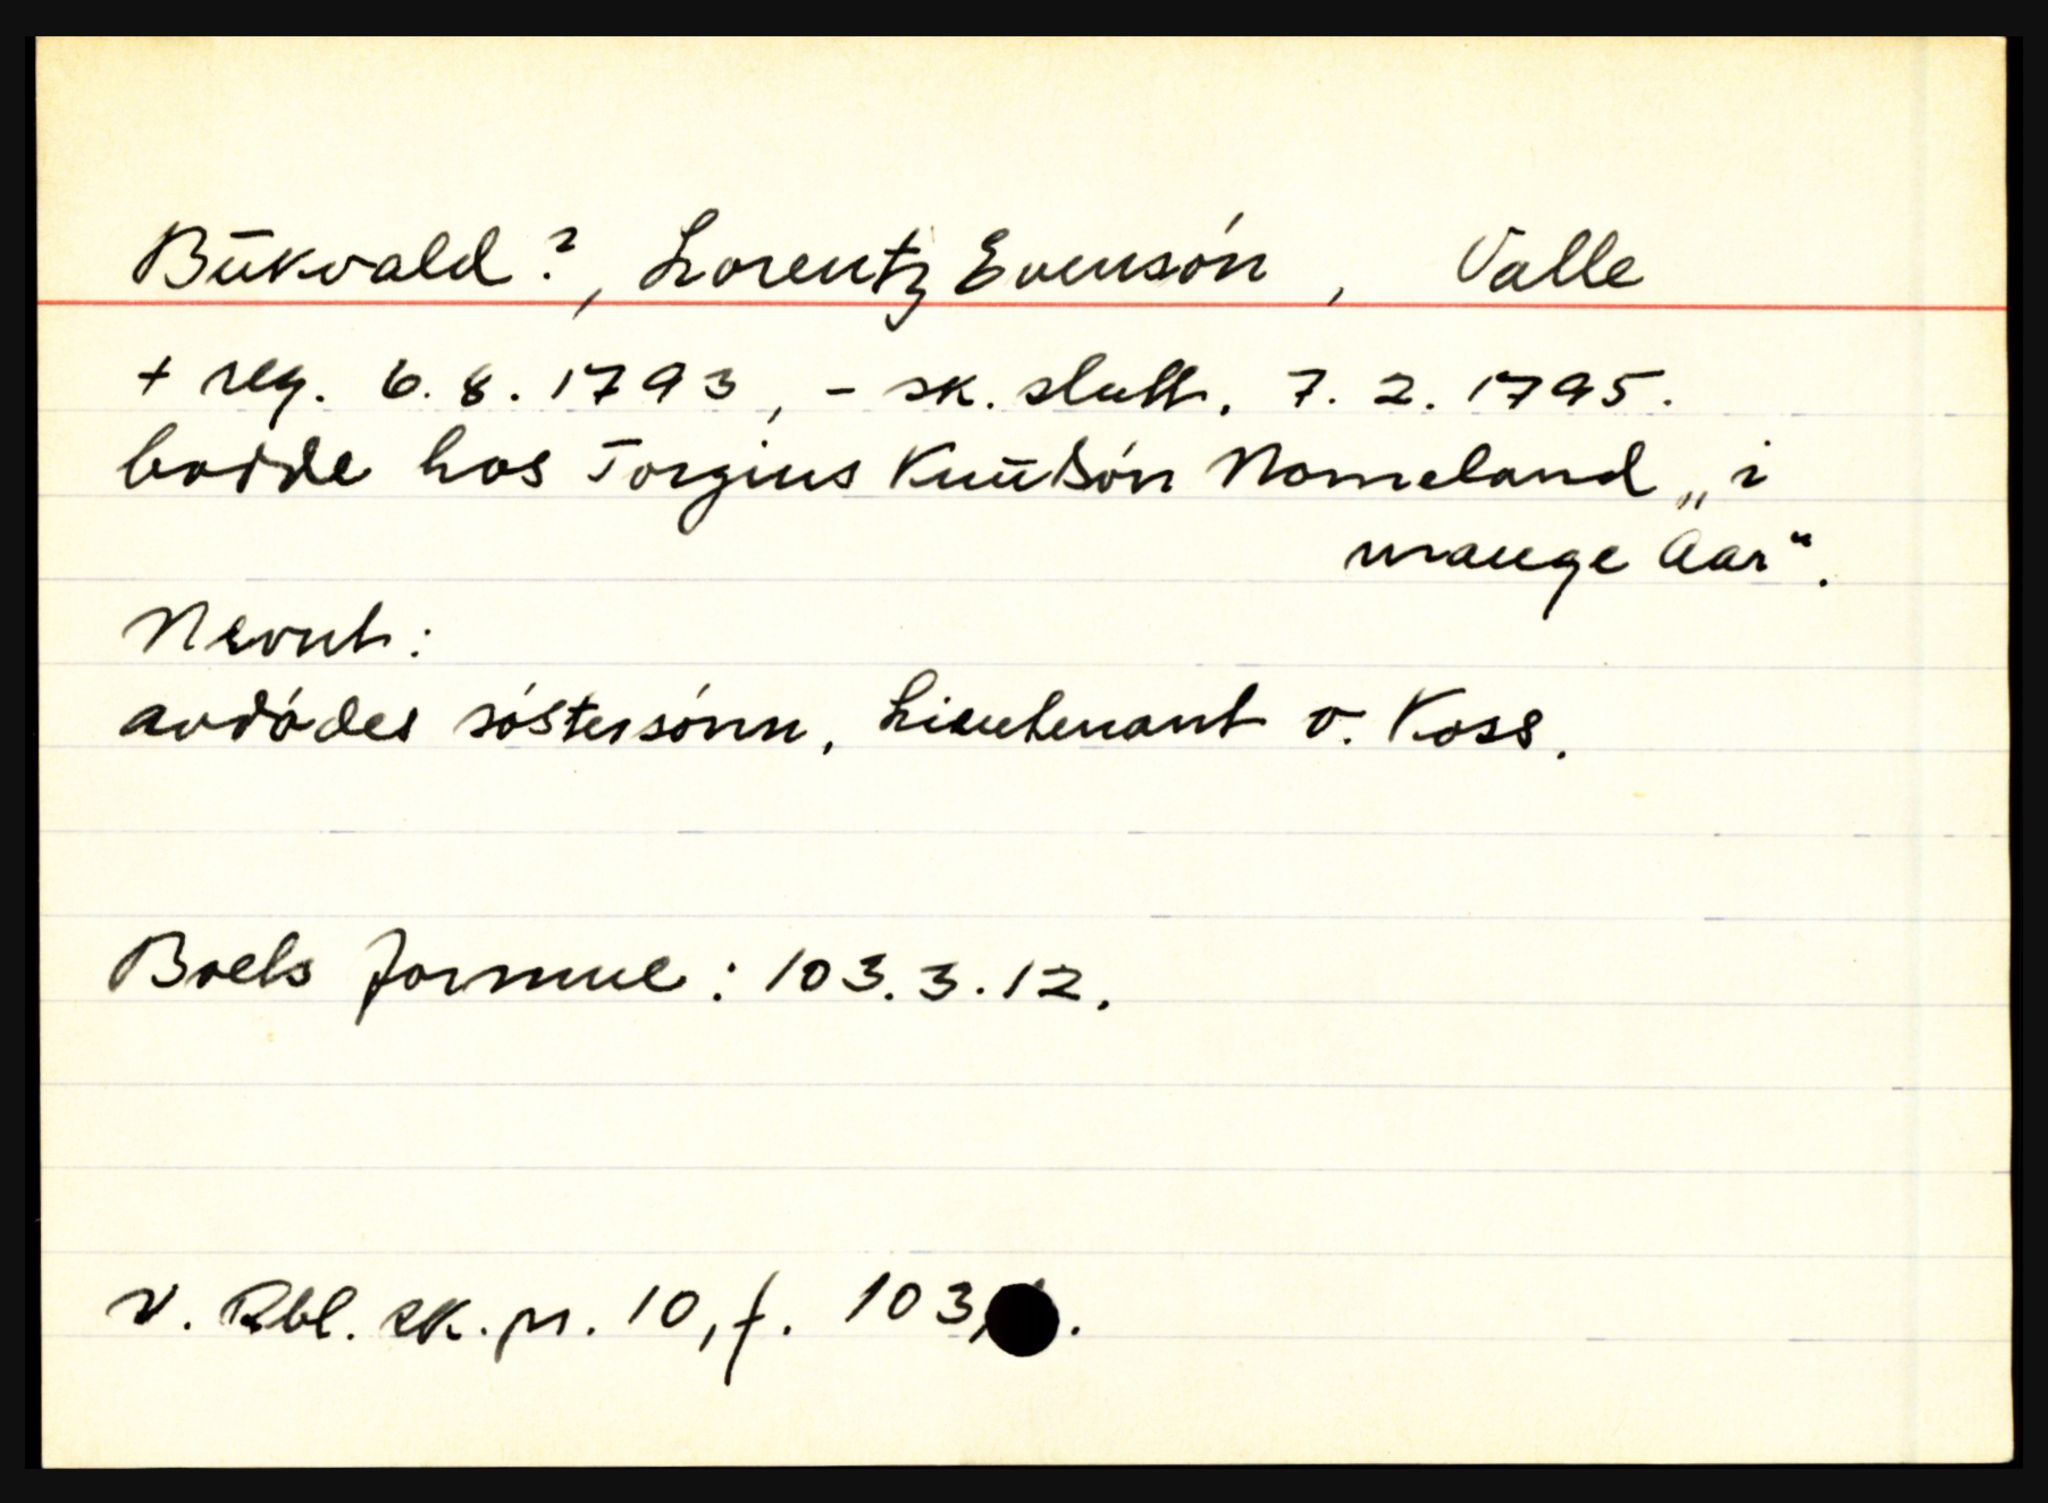 Bükvald?, Lorentz Evensón, Valle
+ reg. 6.8.1793, - sk. slutt. 7.2.1795.
bodde hos Torgius Knüdsón Nomeland „i
mange Aar“.
Nevnt:
avdódes sóstersónn, Lieutenant v. Koss.
Boets formue: 103.3.12.
N. Rbl. sk. pr. 10, f. 103, .